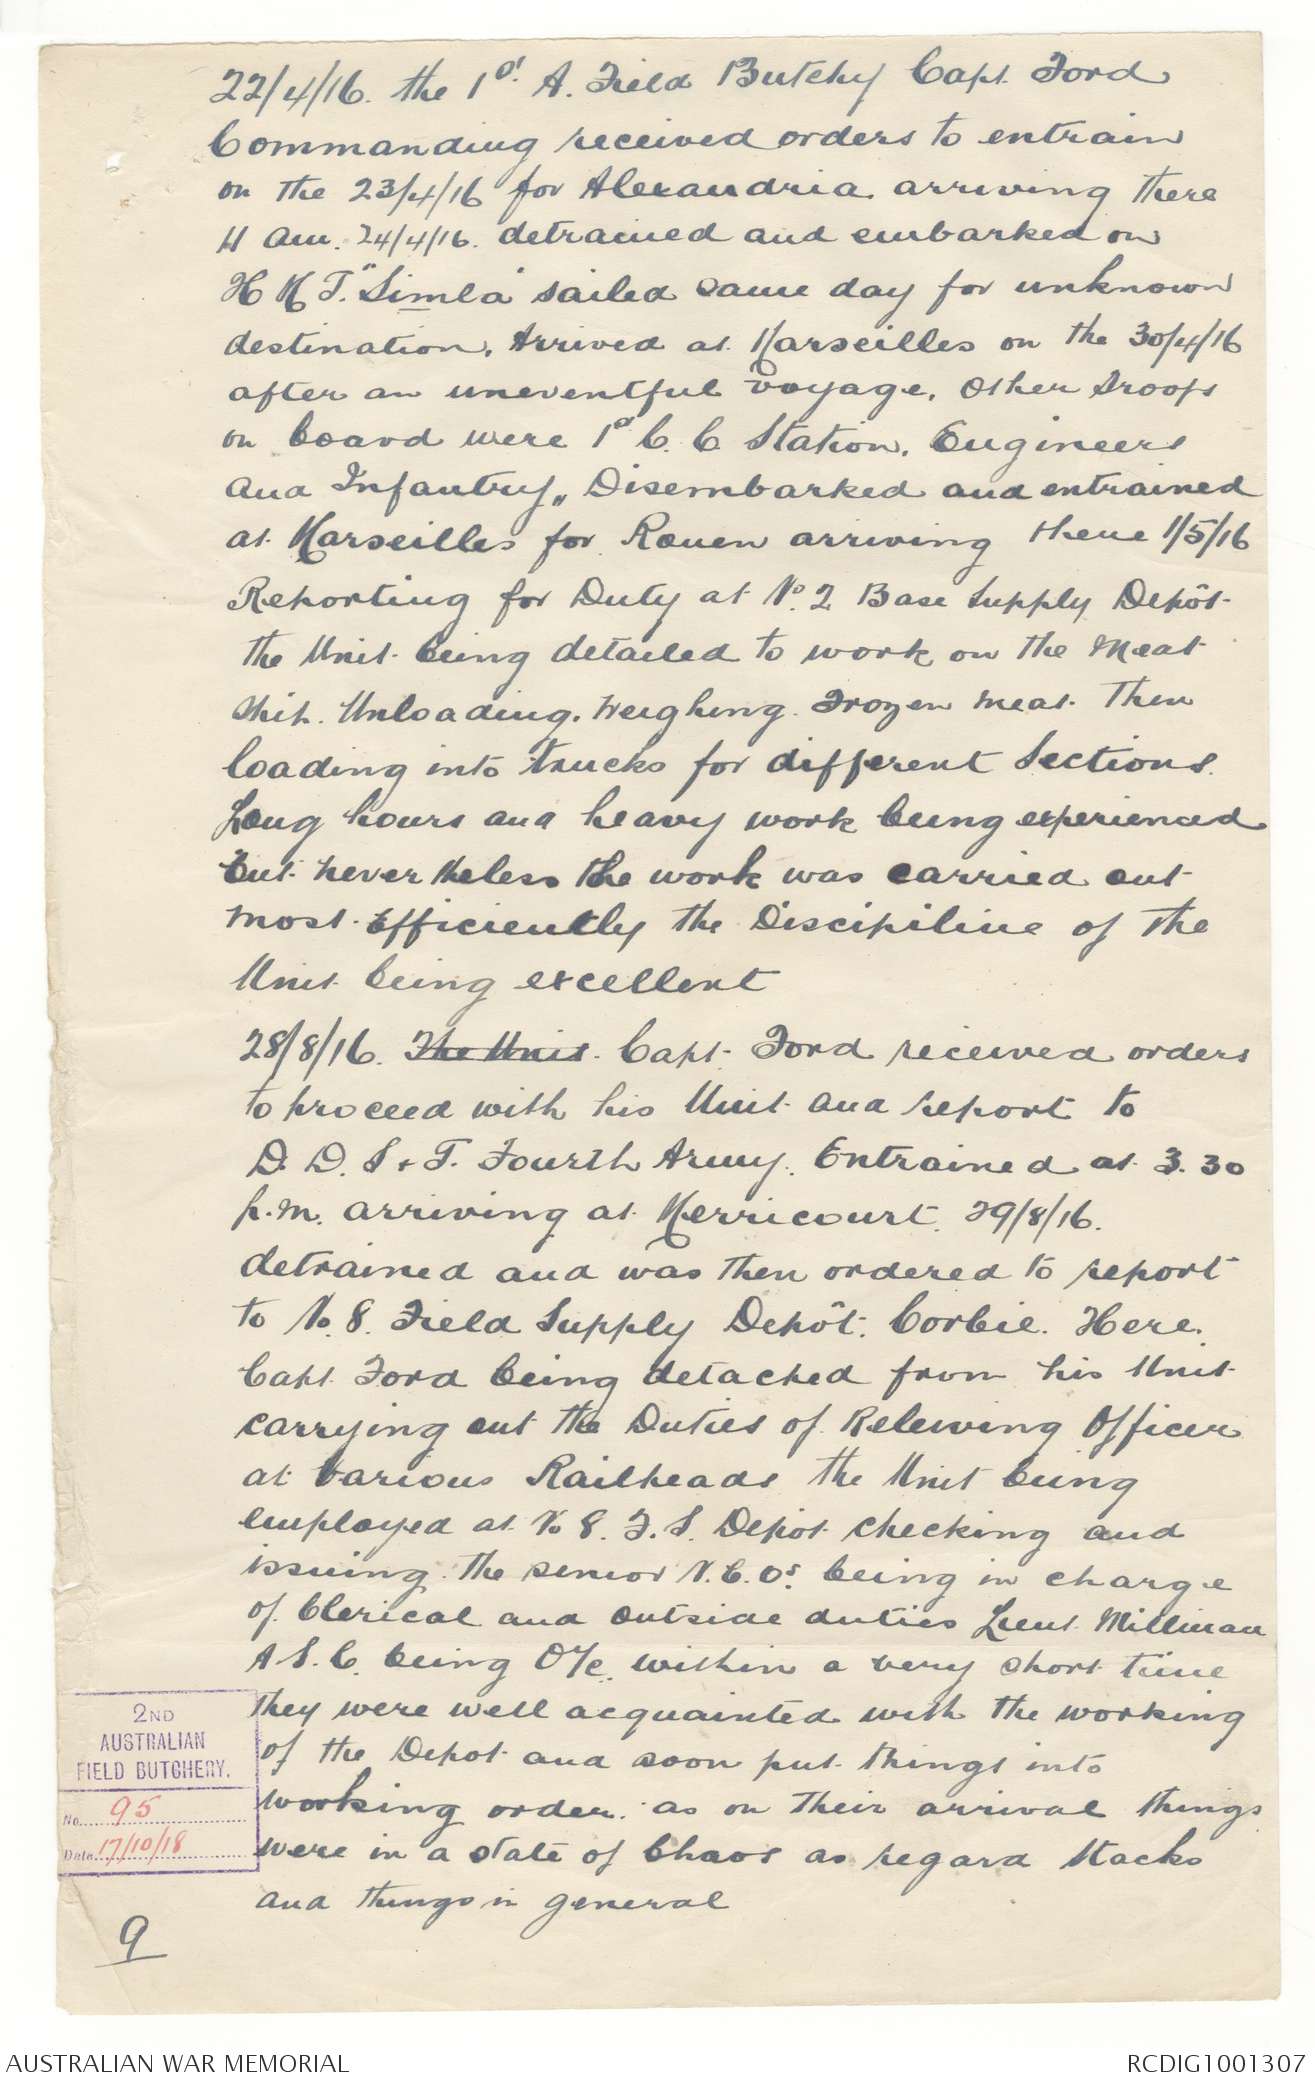 22/4/16. the 1st A. Field Butchy Capt. Ford
Commanding received orders to entrain
on the 23/4/16 for Alexandria arriving there
4 am. 24/4/16. detrained and embarked on
H M T. "Simla" sailed same day for unknown
destination. Arrived at Marseilles on the 30/4/16
after an uneventful voyage. Other troops
on board were 1st C. C Station. Engineers
and Infantry,, Disembarked and entrained
at Marseilles for Rouen arriving there 1/5/16
Reporting for Duty at No. 2 Base Supply Depôt
the Unit being detailed to work on the Meat
Ship. Unloading. Weighing. Frozen Meat. Then
loading into trucks for different Sections.
Long hours and heavy work being experienced
but never theless the work was carried out
most Efficiently the Discipiline of the
Unit being excellent
28/8/16. The Unit. Capt. Ford received orders
to proceed with his Unit and report to
D. D. S + T. Fourth Army. Entrained at 3.30
p.m. arriving at Merricourt. 29/8/16.
detrained and was then ordered to report
to No 8. Field Supply Depôt. Corbie. Here.
Capt Ford being detached from his Unit
carrying out the Duties of Releiving Officer
at various Railheads the Unit being
employed at No 8. F. S. Depôt checking and
issuing. the senior N.C.Os. being in charge
of Clerical and Outside duties Lieut. Millman
A S. C. being O/c. within a very short time
they were well acquainted with the working
of the Depot and soon put things into
working order. as on their arrival things
were in a state of Chaos as regard Stacks
and things in general
2ND
AUSTRALIAN
FIELD BUTCHERY.
No. 95
Date 17/10/18
9
AUSTRALIAN WAR MEMORIAL
RCDIG1001307